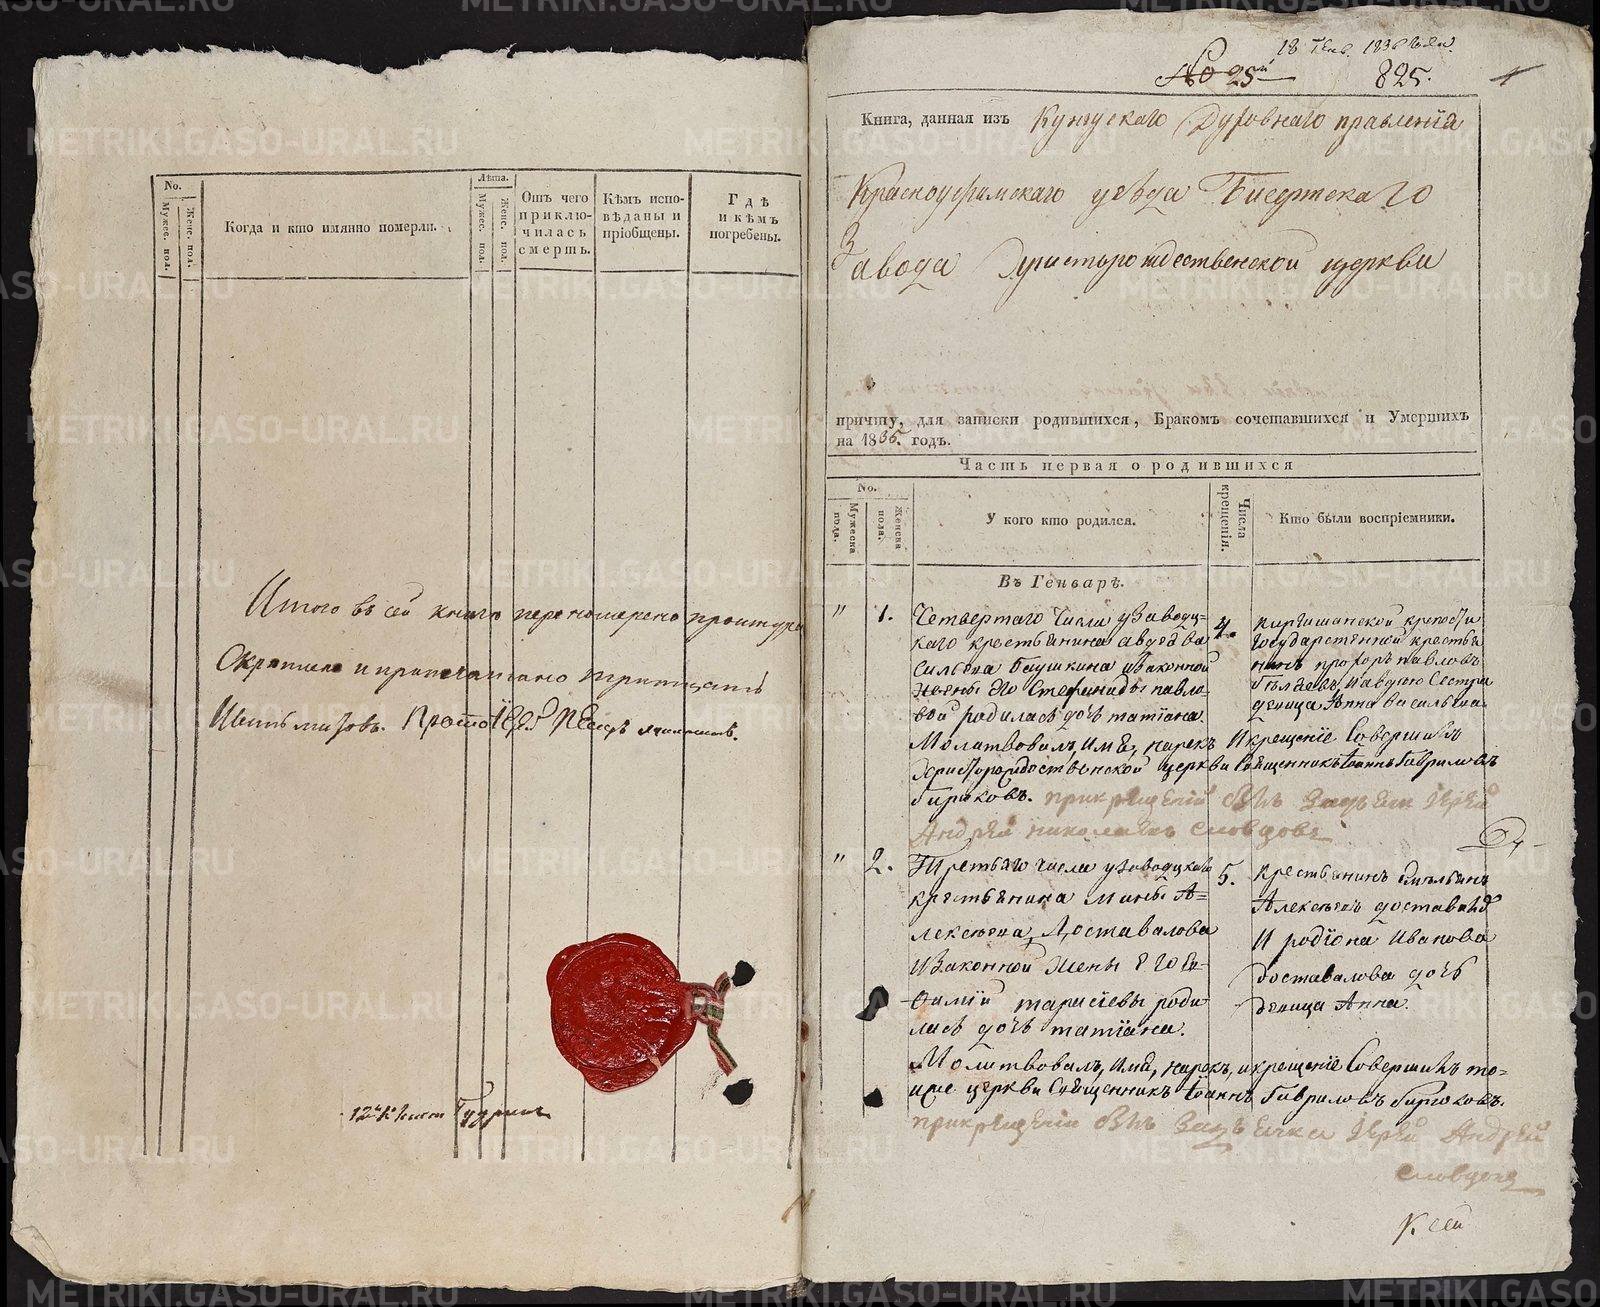 No.
Мужес. пол.
Женс. пол.
Когда и кто имянно померли.
Лѣта.
Мужес. пол.
Женс. пол.
Отъ чего
приклю-
чилась
смерть.
Кѣмъ испо-
вѣданы и
пріобщены.
Гдѣ
и кѣмъ
погребены.
Итого въ сей книге перенумерено прошнуро
Скреплено и припечатано тритцать
листовъ. Протоіерей
18 Генв. 1836 года.
No 25й 825. 1
Книга, данная изъ Кунгускаго Духовнаго правленія
Красноуфимскаго уѣзда Бисертскаго
Завода Христорождественской церкви
причту, для записки родившихся, Бракомъ сочетавшихся и Умершихъ
на 1835. годъ.
Часть первая о родившихся
No.
Мужеска пола.
Женска пола.
У кого кто родился.
Числа крещенія.
Кто были воспріемники.
Въ Генварѣ.
" 1. Четвертаго числа у Заводц-
каго крестьянина Авдѣя Ва
сильева Баушкина и законной
жены его Стефаниды Павло-
вой родилась дочь Татіана.
4.
Киргишанской крепости
государственной крестья
нинъ Прохоръ Павловъ
и Авдѣю сестра
девица Анна Васильева
Молитвовалъ, имя, нарекъ и крещеніе совершилъ
Христорождественской церкви священникъ Іоаннъ Гавриловъ
Гиряковъ. при крещеніи былъ за дьячка Іерей
Андрей Николаевъ Словцовъ
" 2. Третьяго числа у Заводцкаго
крестьянина Мины А-
лексѣева Доставалова
и законной жены его Ев-
фиміи Тарасіевы роди
лась дочь Татіана.
5.
Крестьянинъ Емельянъ
Алексѣевъ Доставаловъ
и Родіона Иванова
Доставалова дочь
девица Анна.
Молитвовалъ, имя, нарекъ, и крещеніе совершилъ то-
йже церкви священникъ Іоаннъ Гавриловъ Гиряковъ.
при крещеніи былъ за дьячка Іерей Андрей
Словцовъ
К сей